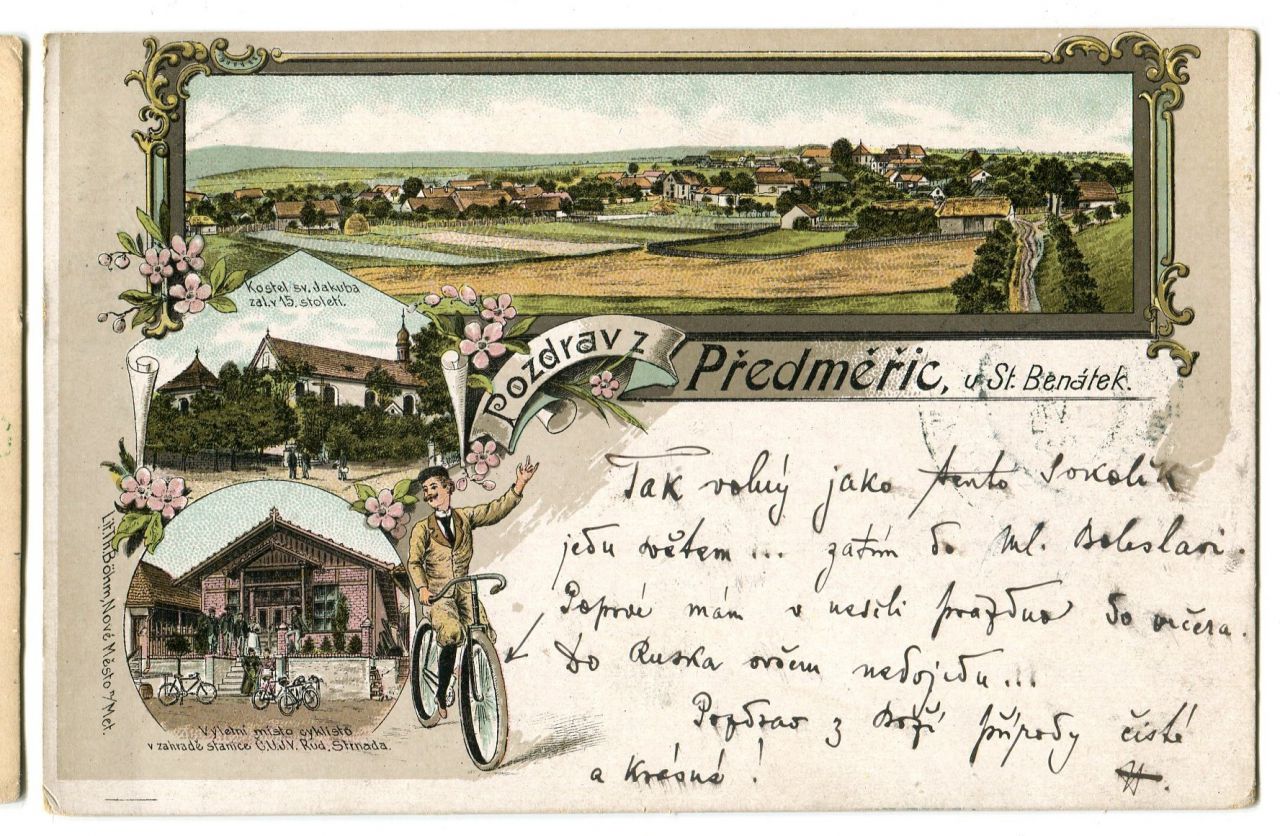 Kostel sv. Jakuba
zal. v 15. století.
Pozdrav z
Předměřic, u St. Benátek.
Tak volný jako tento Sokolík
jedu světem ... zatím do Ml. Boleslavi.
Poprvé mám v neděli prázdno do večera.
Do Ruska ovšem nedojedu ...
Pozdrav z Boží přírody čisté
a krásné!
Výletní místo cyklistů
v zahradě stanice Č.U.J.V. Rud. Strnada.
Lit. Th. Böhm Nové Město n/Met.